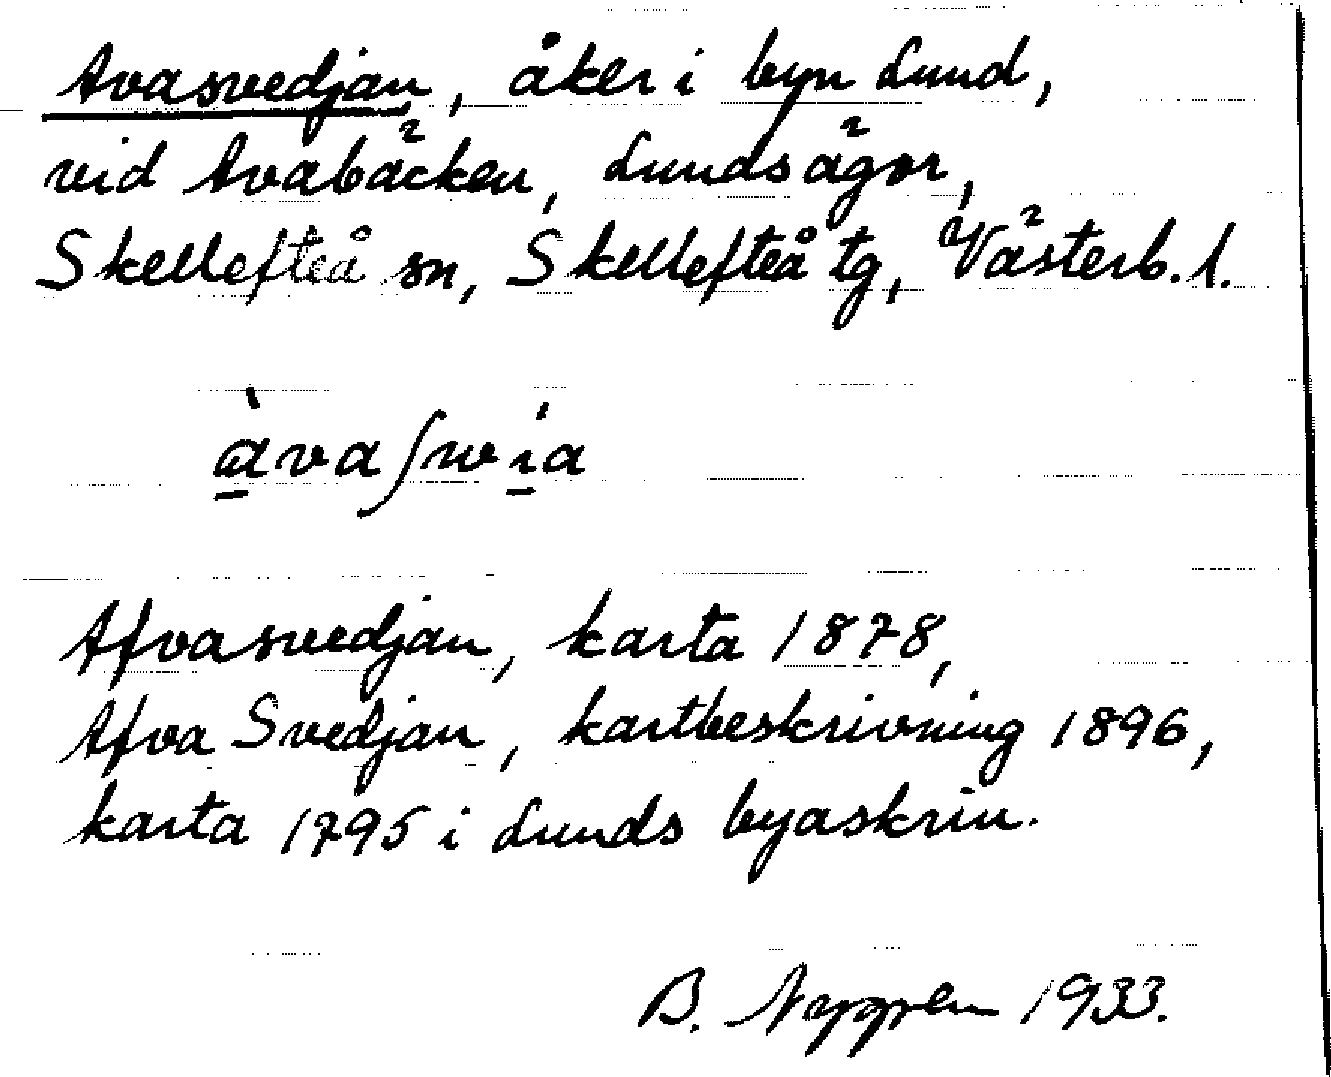 Avasvedjan, åker i byn Lund,
vid Avabäcken, Lunds ägor,
Skellefteå sn, Skellefteå tg, Västerb. l.
àvaʃwía
Afvasvedjan, karta 1878,
Afva Svedjan, kartbeskrivning 1896,
karta 1795 i Lunds byaskrin.
B. Nygren 1933.